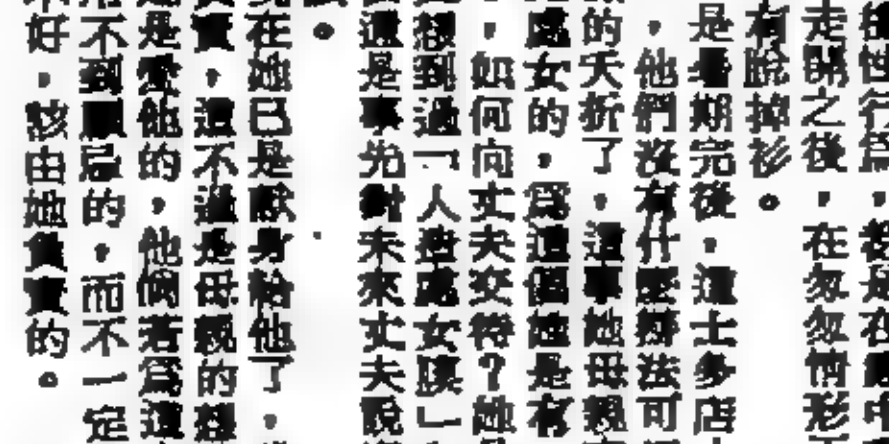 性行為
走開之後，在匆匆情形
有脫掉衫。
是暑期完後，這士多店
，他們沒有什麼辦法可
的夭折了，這事她母親
處女的，為這個她是有
，如何向丈夫交待？她
想到過「人造處女膜」
這是事先對未來丈夫說
在她已是獻身給他了，
實，這不過是母親的想
是愛他的，他倆若為這
不到顧忌的，而不一定
好，該由她負責的。